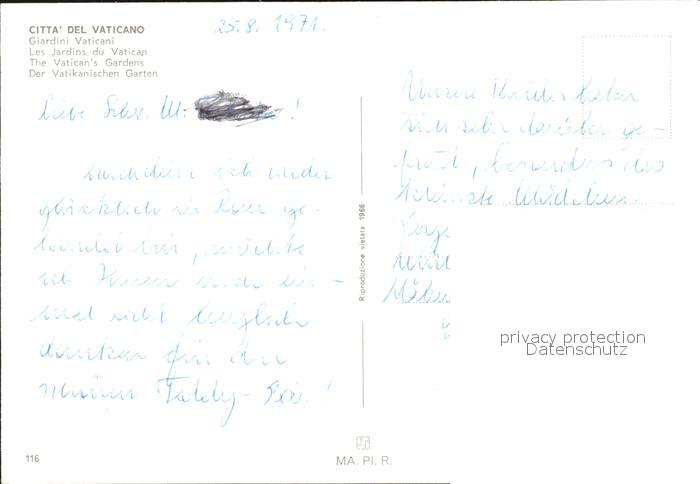 CITTA' DEL VATICANO
Giardini Vaticani
Les Jardins du Vatican
The Vatican's Gardens
Der Vatikanischen Garten
25.8. 1971.
Liebe Schw. M. !
nachdem ich wieder
glücklich in Rom ge-
landet bin, möchte
ich Ihnen noch ein-
mal recht herzlich
danken für den
schönen Teddy-Bär!
Riproduzione vietata 1966
Unsere Kinder haben
sich sehr darüber ge-
freut, besonders das
kleinste Mädchen.
privacy protection
Datenschutz
116
MA. PI. R.